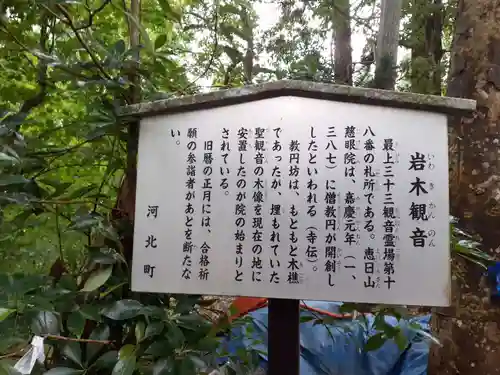 岩木観音
いわきかんのん
最上三十三観音霊場第十
八番の札所である。恵日山
慈眼院は、嘉慶元年(一、
三八七)に僧教円が開創
したといわれる(寺伝)。
教円坊は、もともと木樵
であったが、埋もれていた
聖観音の木像を現在の地に
安置したのが院の始まりと
されている。
旧暦の正月には、合格祈
願の参詣者があとを断たな
い。
河北町